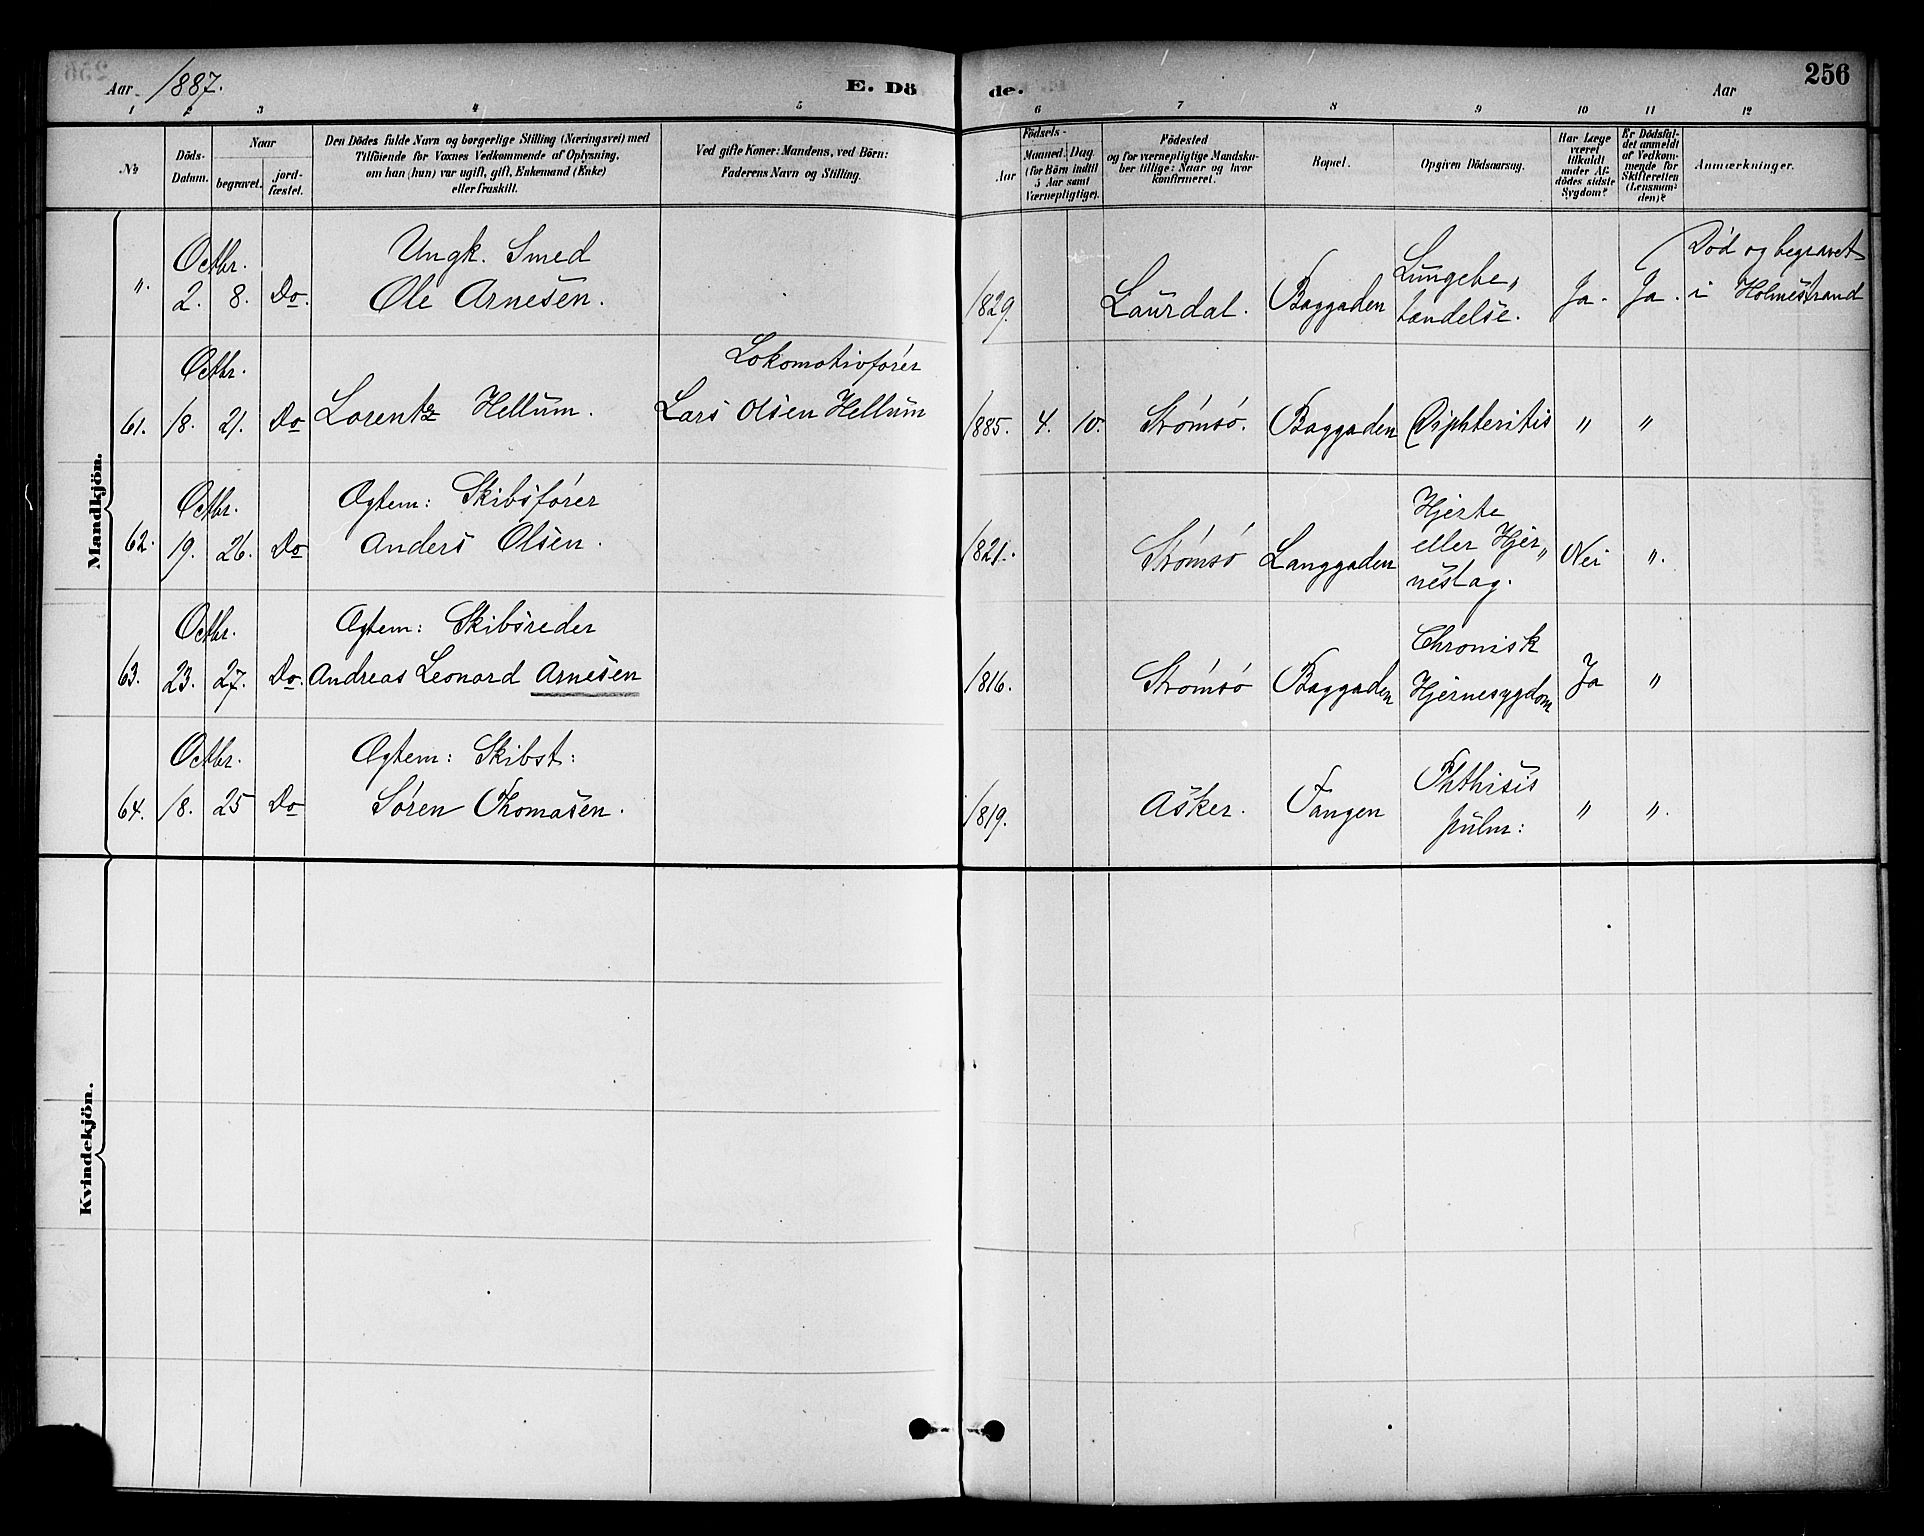 Aar 1887. E. Dö
de. Aar 256
1 2 3 4 5 6 7 8 9 10 11 12
No
Döds-
Datum.
Naar
begravet.
jord-
fæstet.
Den Dödes fulde Navn og borgerlige Stilling (Næringsvei) med
Tilföiende for Voxnes Vedkommende af Oplysning,
om han (hun) var ugift, gift, Enkemand (Enke)
eller fraskilt.
Ved gifte Koner: Mandens, ved Börn:
Faderens Navn og Stilling.
Födsels-
Aar
Maaned. Dag
(for Börn indtil
5 Aar samt
Værnepligtige).
Födested
og for værnepligtige Mandska-
ber tillige: Naar og hvor
konfirmeret.
Bopæl.
Opgiven Dödsaarsag.
Har Læge
været
tilkaldt
under Af-
dödes sidste
Sygdom?
Er Dödsfal-
det anmeldt
af Vedkom-
mende for
Skifteretten
(Lensman-
den)?
Anmærkninger.
Mandkjön.
Octbr. Ungk. Smed
". 2. 8. Do. Ole Arnesen.
1829. Laurdal. Baggaden Lungebe,
tændelse. Ja. Ja. Død og begravet
i Holmestrand
Octbr. Lokomotivfører
61. 18. 21. Do Lorentz Hellum. Lars Olsen Hellum
1885. 4. 10. Strømsø. Baggaden Diphteritis " "
Octbr. Ægtem: Skibsfører
62. 19. 26. Do Anders Olsen.
1821. Strømsø Langgaden Hjerte
eller Hjer„
neslag. Nei ".
Octbr. Ægtem: Skibsreder
63. 23. 27. Do. Andreas Leonard Arnesen
1816. Strømsø Baggaden Chronisk
Hjernesygdom Ja "
Octbr. Ægtem: Skibst:
64. 18. 25 Do Søren Thomasen.
1819. Asker. Tangen Phthisis
pulm: " ".
Kvindekjön.